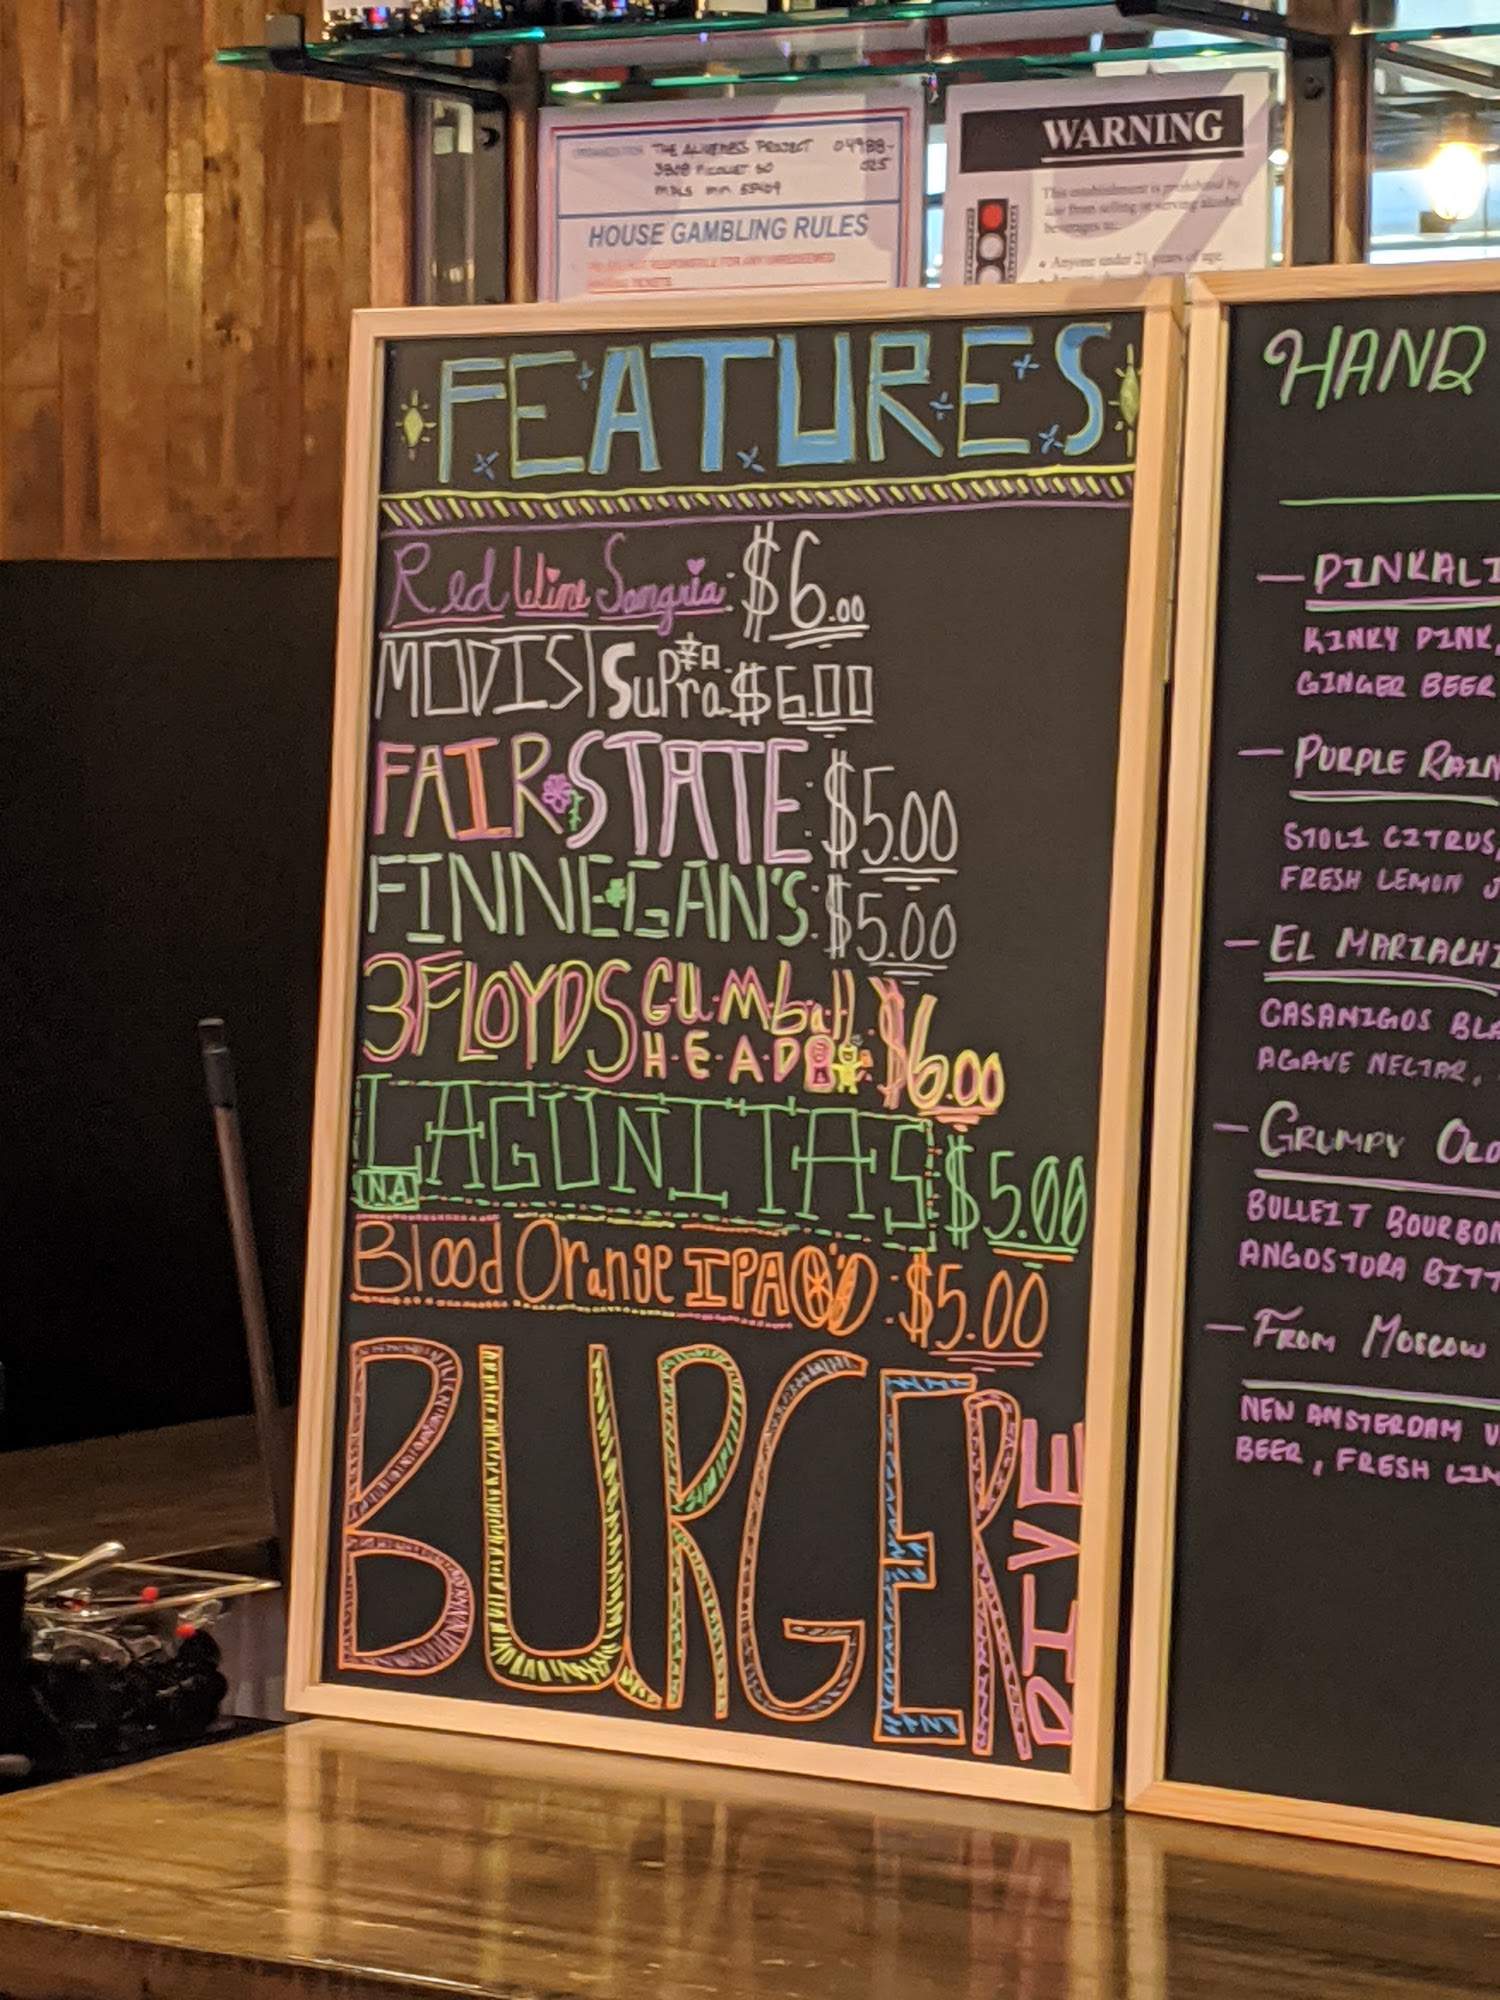 THE ALIVENESS PROJECT 04988-
3808 NICOLLET SO 025
MPLS MN 55409
HOUSE GAMBLING RULES
WARNING
This establishment is prohibited by
law from selling or serving alcohol
beverages to:
Anyone under 21 years of age.
FEATURES
Red Wine Sangria: $6.00
MODIST Supra: $6.00
FAIR STATE: $5.00
FINNEGAN'S: $5.00
3FLOYDS GUMball HEAD: $6.00
LAGUNITAS $5.00
NA
Blood Orange IPA: $5.00
BURGER
DIVE
HAND
— PINKALI
KINKY PINK,
GINGER BEER
— PURPLE RAIN
STOLI CITRUS,
FRESH LEMON J
— EL MARIACHI
CASAMIGOS BLA
AGAVE NECTAR,
— GRUMPY OLD
BULLEIT BOURBON
ANGOSTORA BITT
— FROM MOSCOW
NEW AMSTERDAM V
BEER, FRESH LIM